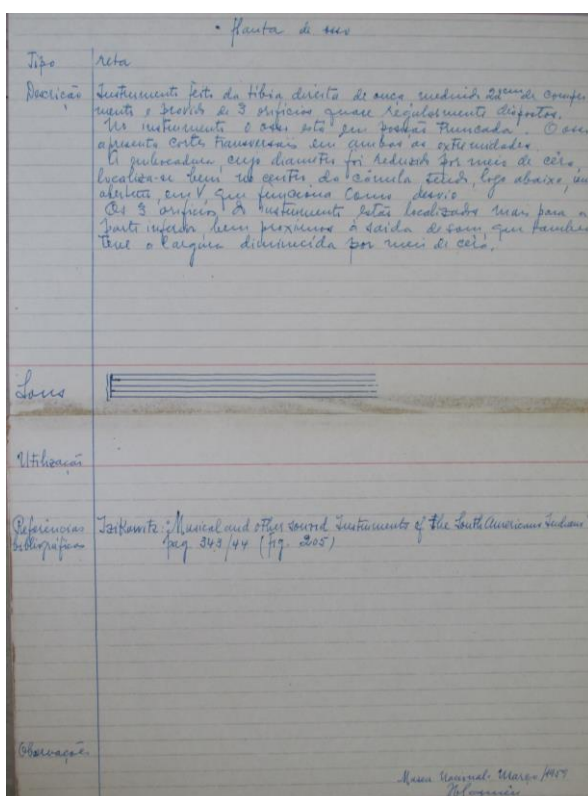 • flauta de osso
Tipo reta
Descrição Instrumento feito da tíbia direita de onça medindo 22cm de compri-
mento e provido de 3 orifícios quase regularmente dispostos.
No instrumento o osso está em posição truncada. O osso
apresenta cortes transversais em ambas as extremidades.
A embocadura cujo diametro foi reduzido por meio de cêra
localiza-se bem no centro da cânula tendo, logo abaixo, um
abertura, em V, que funciona como desvio.
Os 3 orifícios do instrumento estão localizados mais para a
parte inferior, bem proximos à saída de som, que tambem
teve a largura diminuida por meio de cêra.
Sons
Utilização
Referências Izikowitz: Musical and other sound Instruments of the South Americans Indians
bibliográficas pag. 343/44 (fig. 205)
Observações
Museu Nacional. Março/1957